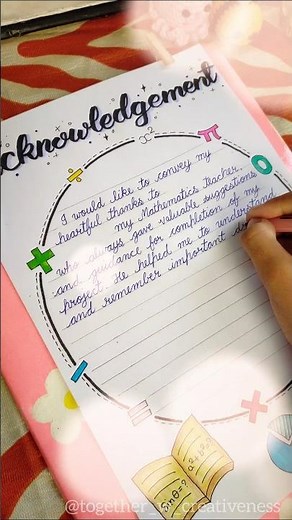 Acknowledgement
÷
x²
π
0
I would like to convey my
heartful thanks to
my Mathematics teacher
who always gave valuable suggestions
and guidance for completion of my
project. He helped me to understand
and remember important
+
/
=
×
@together_
creativeness